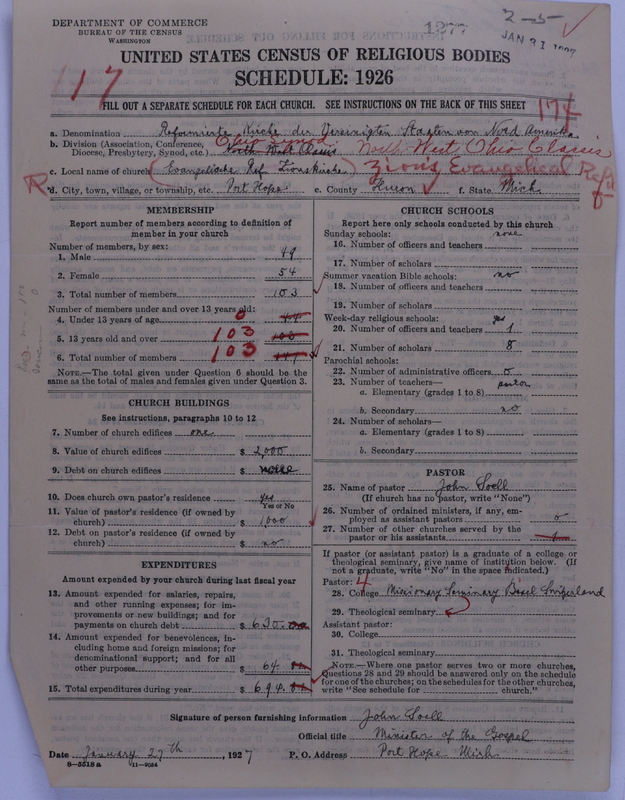 DEPARTMENT OF COMMERCE
BUREAU OF THE CENSUS
WASHINGTON
1277
2-5
JAN 31 1927
UNITED STATES CENSUS OF RELIGIOUS BODIES
SCHEDULE: 1926
117
FILL OUT A SEPARATE SCHEDULE FOR EACH CHURCH. SEE INSTRUCTIONS ON THE BACK OF THIS SHEET
174
a. Denomination Reformierte Kirche der Vereinigten Staaten von Nord Amerika
Ohio Synod
b. Division (Association, Conference, Diocese, Presbytery, Synod, etc.) North West Classis North West Ohio Classis
c. Local name of church (Evangelische Ref. Zionskirche) Zion's Evangelical Ref'd
R
d. City, town, village, or township, etc. Port Hope e. County Huron f. State Mich
MEMBERSHIP
Report number of members according to definition of member in your church
Number of members, by sex:
1. Male 49
2. Female 54
3. Total number of members 103
Number of members under and over 13 years old:
4. Under 13 years of age 0
5. 13 years old and over 103
6. Total number of members 103
NOTE.—The total given under Question 6 should be the same as the total of males and females given under Question 3.
CHURCH BUILDINGS
See instructions, paragraphs 10 to 12
7. Number of church edifices one
8. Value of church edifices $ 2,000
9. Debt on church edifices $ none
10. Does church own pastor's residence yes
Yes or No
11. Value of pastor's residence (if owned by church) $ 1,000
12. Debt on pastor's residence (if owned by church) $ no
EXPENDITURES
Amount expended by your church during last fiscal year
13. Amount expended for salaries, repairs, and other running expenses; for improvements or new buildings; and for payments on church debt $ 630.00
14. Amount expended for benevolences, including home and foreign missions; for denominational support; and for all other purposes $ 64
15. Total expenditures during year $ 694
CHURCH SCHOOLS
Report here only schools conducted by this church
Sunday schools: none
16. Number of officers and teachers
17. Number of scholars
Summer vacation Bible schools: no
18. Number of officers and teachers
19. Number of scholars
Week-day religious schools: yes
20. Number of officers and teachers 1
21. Number of scholars 8
Parochial schools:
22. Number of administrative officers 0
23. Number of teachers— pastor
a. Elementary (grades 1 to 8)
b. Secondary no
24. Number of scholars—
a. Elementary (grades 1 to 8)
b. Secondary
PASTOR
25. Name of pastor John Soell
(If church has no pastor, write "None")
26. Number of ordained ministers, if any, employed as assistant pastors 0
27. Number of other churches served by the pastor or his assistants
If pastor (or assistant pastor) is a graduate of a college or theological seminary, give name of institution below. (If not a graduate, write "No" in the space indicated.)
Pastor: 4
28. College Missionary Seminary Basel Switzerland
29. Theological seminary
Assistant pastor:
30. College
31. Theological seminary
NOTE.—Where one pastor serves two or more churches, Questions 28 and 29 should be answered only on the schedule for one of the churches; on the schedules for the other churches, write "See schedule for church."
Signature of person furnishing information John Soell
Official title Minister of the Gospel
Date January 27th, 1927 P. O. Address Port Hope Mich
8—5518a 11—9094